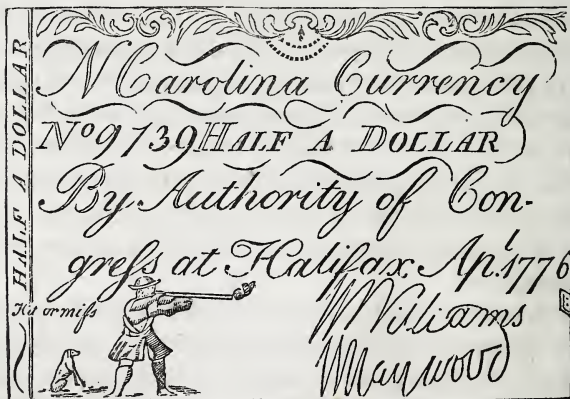 HALF A DOLLAR
N Carolina Currency
No 9739 HALF A DOLLAR
By Authority of Con-
greſs at Halifax, Apl. 1776
Hit or miſs
WWilliams
WHaywood